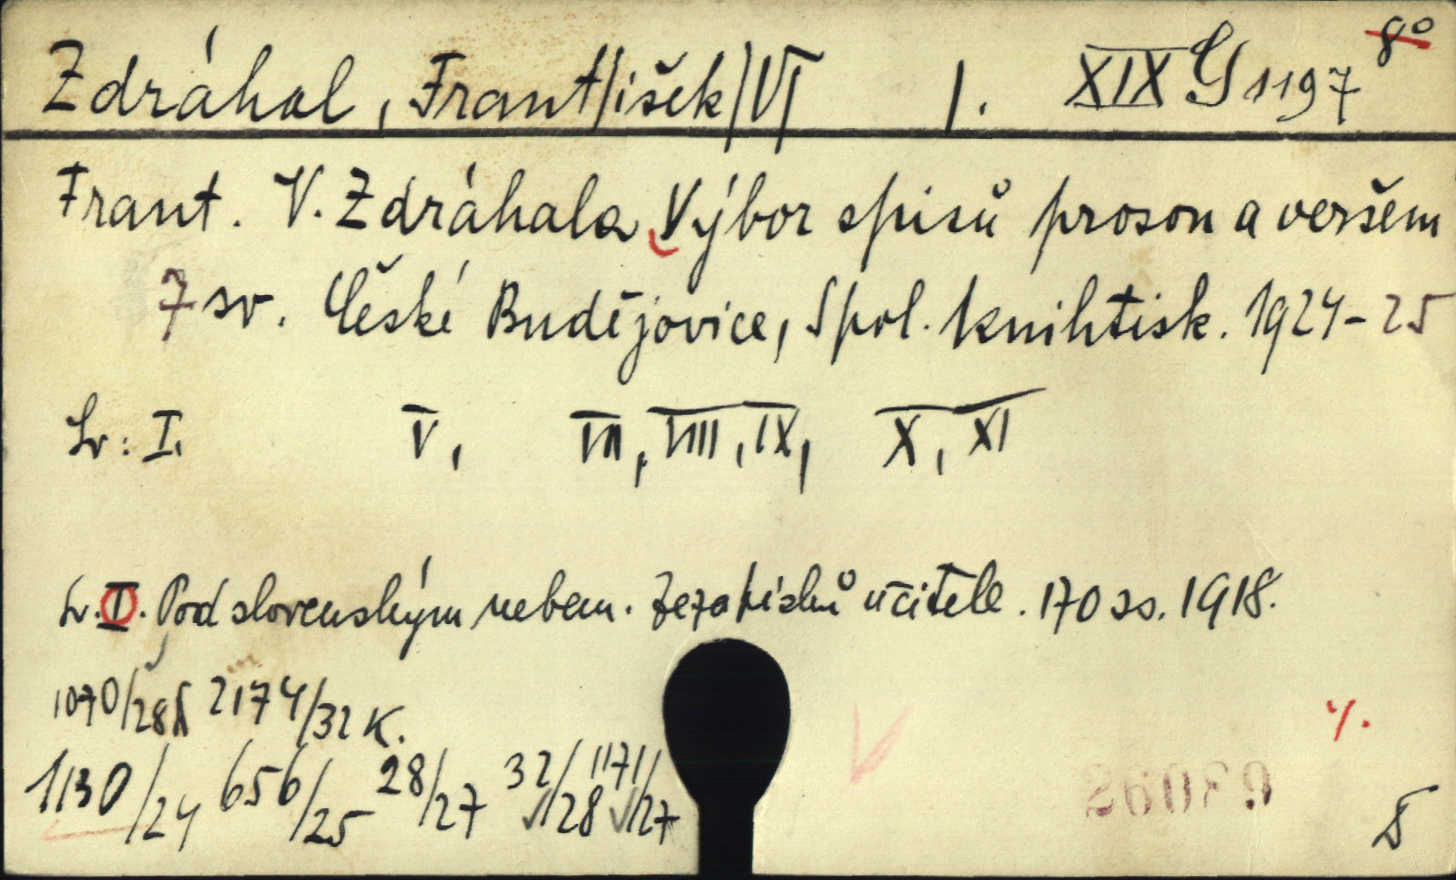 Zdráhal, Frant/išek/V/ 1. XIX G 1197 8°
Frant. V. Zdráhala Výbor spisů prosou a veršem
7 sv. České Budějovice, Spol. knihtisk. 1924-25
Sv: I. V, VII, VIII, IX, X, XI
Sv. I. Pod slovenským nebem. Ze zápisků učitele. 170 ss. 1918.
1070/28 2174/32 K.
1130/24 656/25 28/27 32/28 1171/27